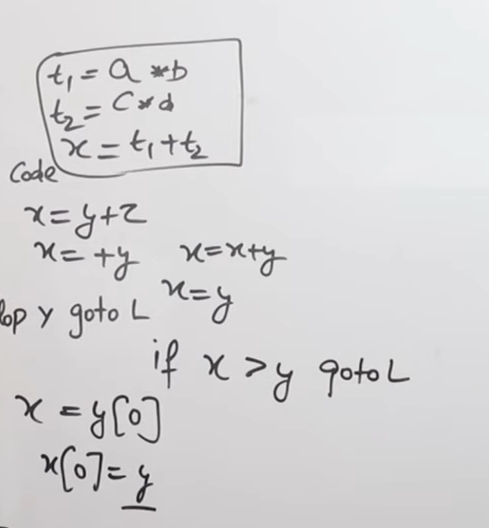 t₁ = a * b
t₂ = c * d
x = t₁ + t₂
Code
x = y + z
x = + y x = x + y
x = y
op y goto L
if x > y goto L
x = y[0]
x[0] = y